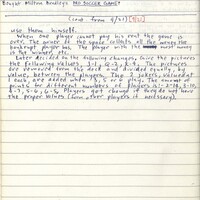 Bought Milton Bradley's PRO SOCCER GAME
(cont from 9/21)
use them himself.
When one player cannot pay his rent the game is
over. The owner of the space collects all the money the
bankrupt player has. The player with the most money
is the winner, etc.
Later decided to the following changes, give the pictures
the following values, The pictures
are removed from the deck and divided equally, by
value, between the players. The 2 jokers, valued at
each, are added when 3, 5 or 6 play. The amount of
points for different numbers of players is:
4-7, 5-6, 6-5 Players get change if they do not have
the proper values (from other players if necessary).